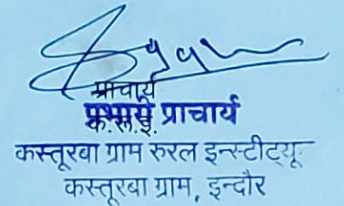 प्राचार्य
प्रभारी प्राचार्य
क.रू.इ.
कस्तूरबा ग्राम रुरल इन्स्टीट्यू
कस्तूरबा ग्राम, इन्दौर